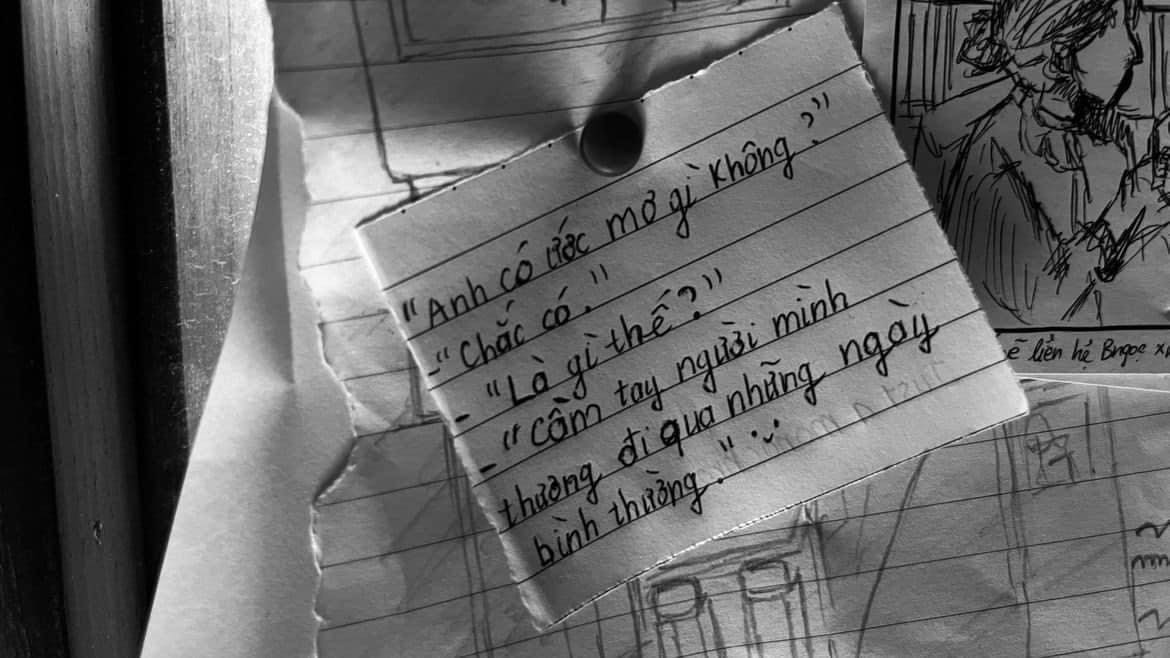 "Anh có ước mơ gì không?"
- "Chắc có."
- "Là gì thế?"
- "Cầm tay người mình
thương đi qua những ngày
bình thường."
liên hệ Bngọc